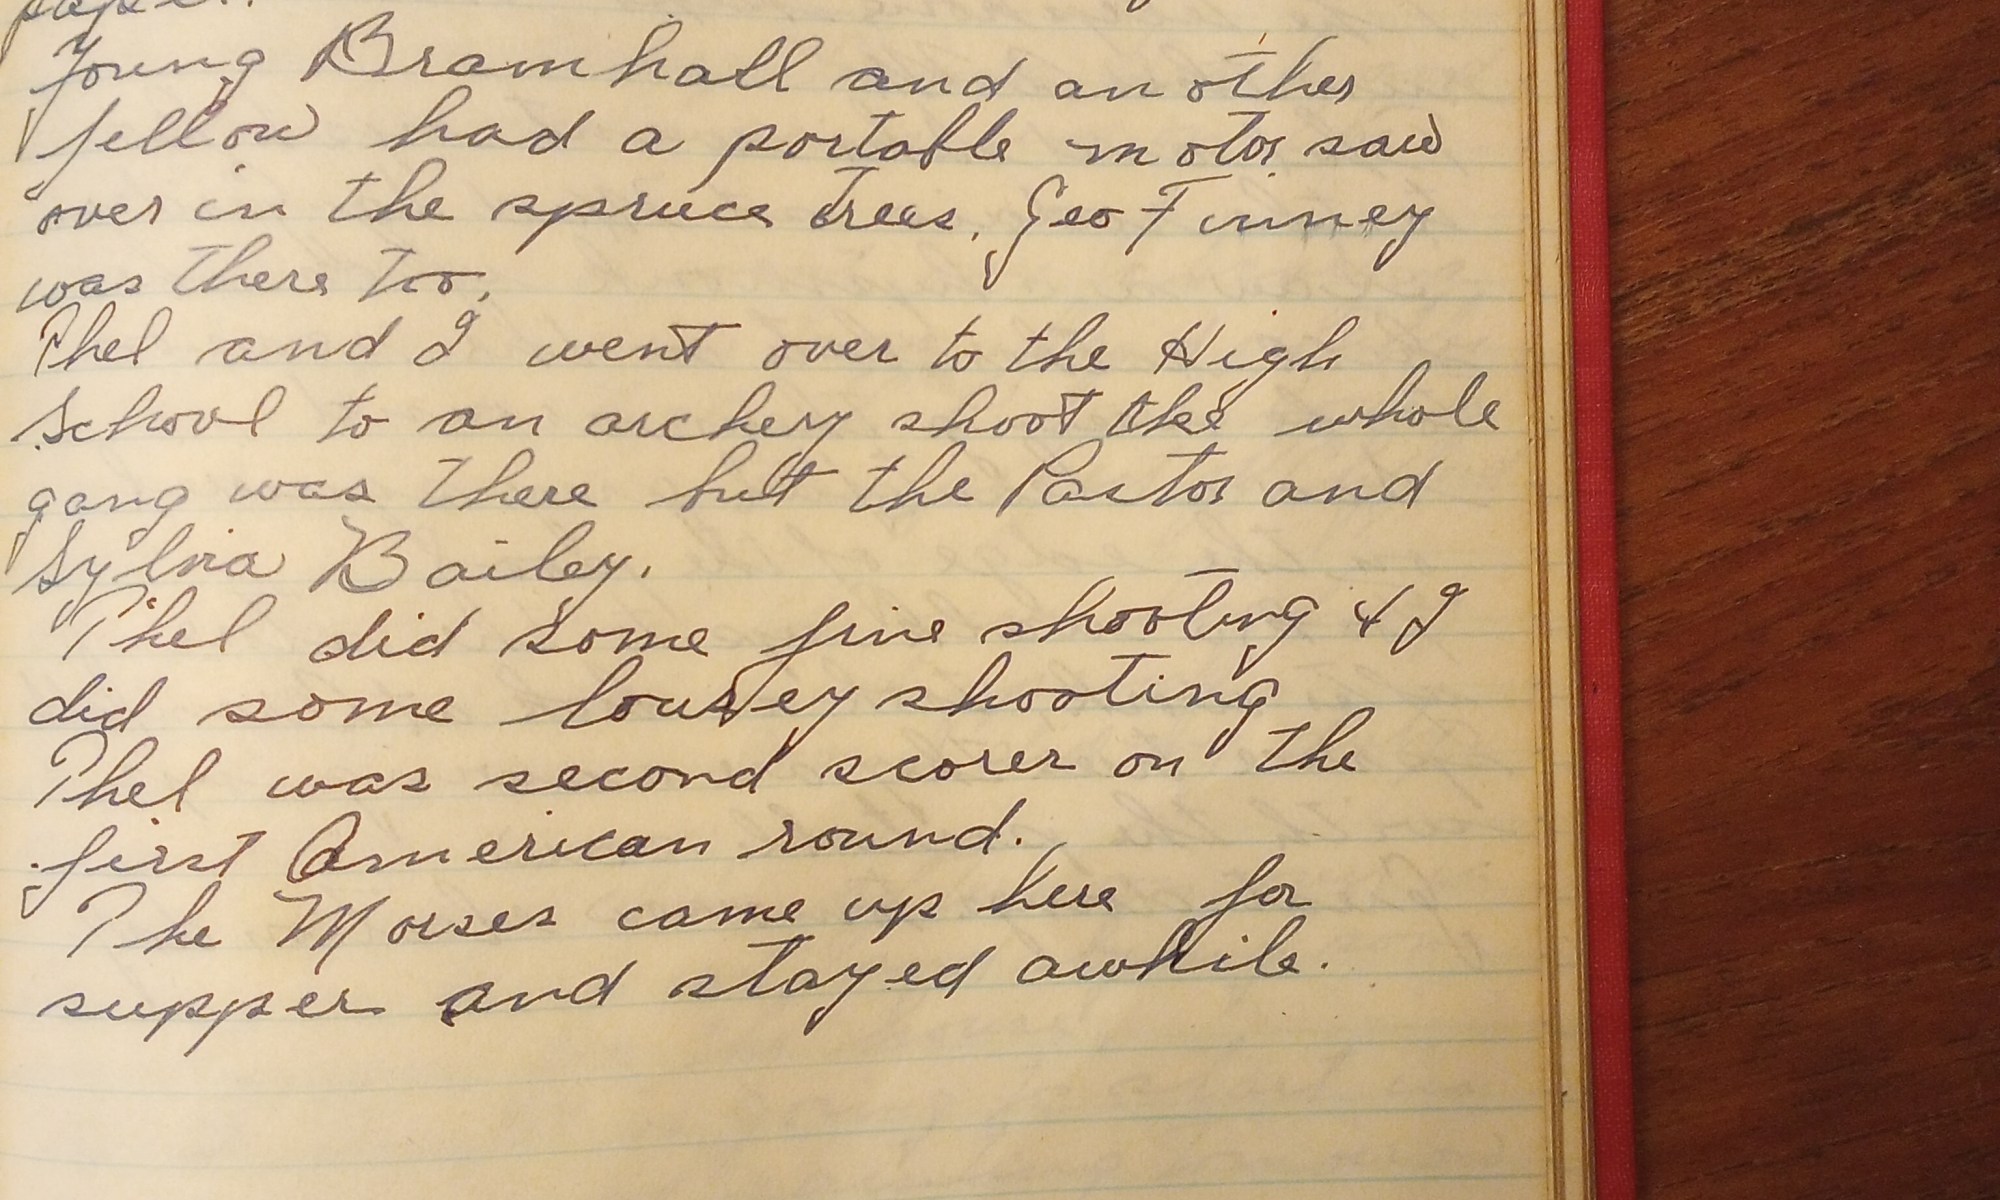 paper.
Young Bramhall and another
fellow had a portable motor saw
over in the spruce trees. Geo Finney
was there too.
Phel and I went over to the High
School to an archery shoot the whole
gang was there but the Pastor and
Sylvia Bailey.
Phel did some fine shooting & I
did some lousey shooting
Phel was second scorer on the
first American round.
The Morses came up here for
supper and stayed awhile.